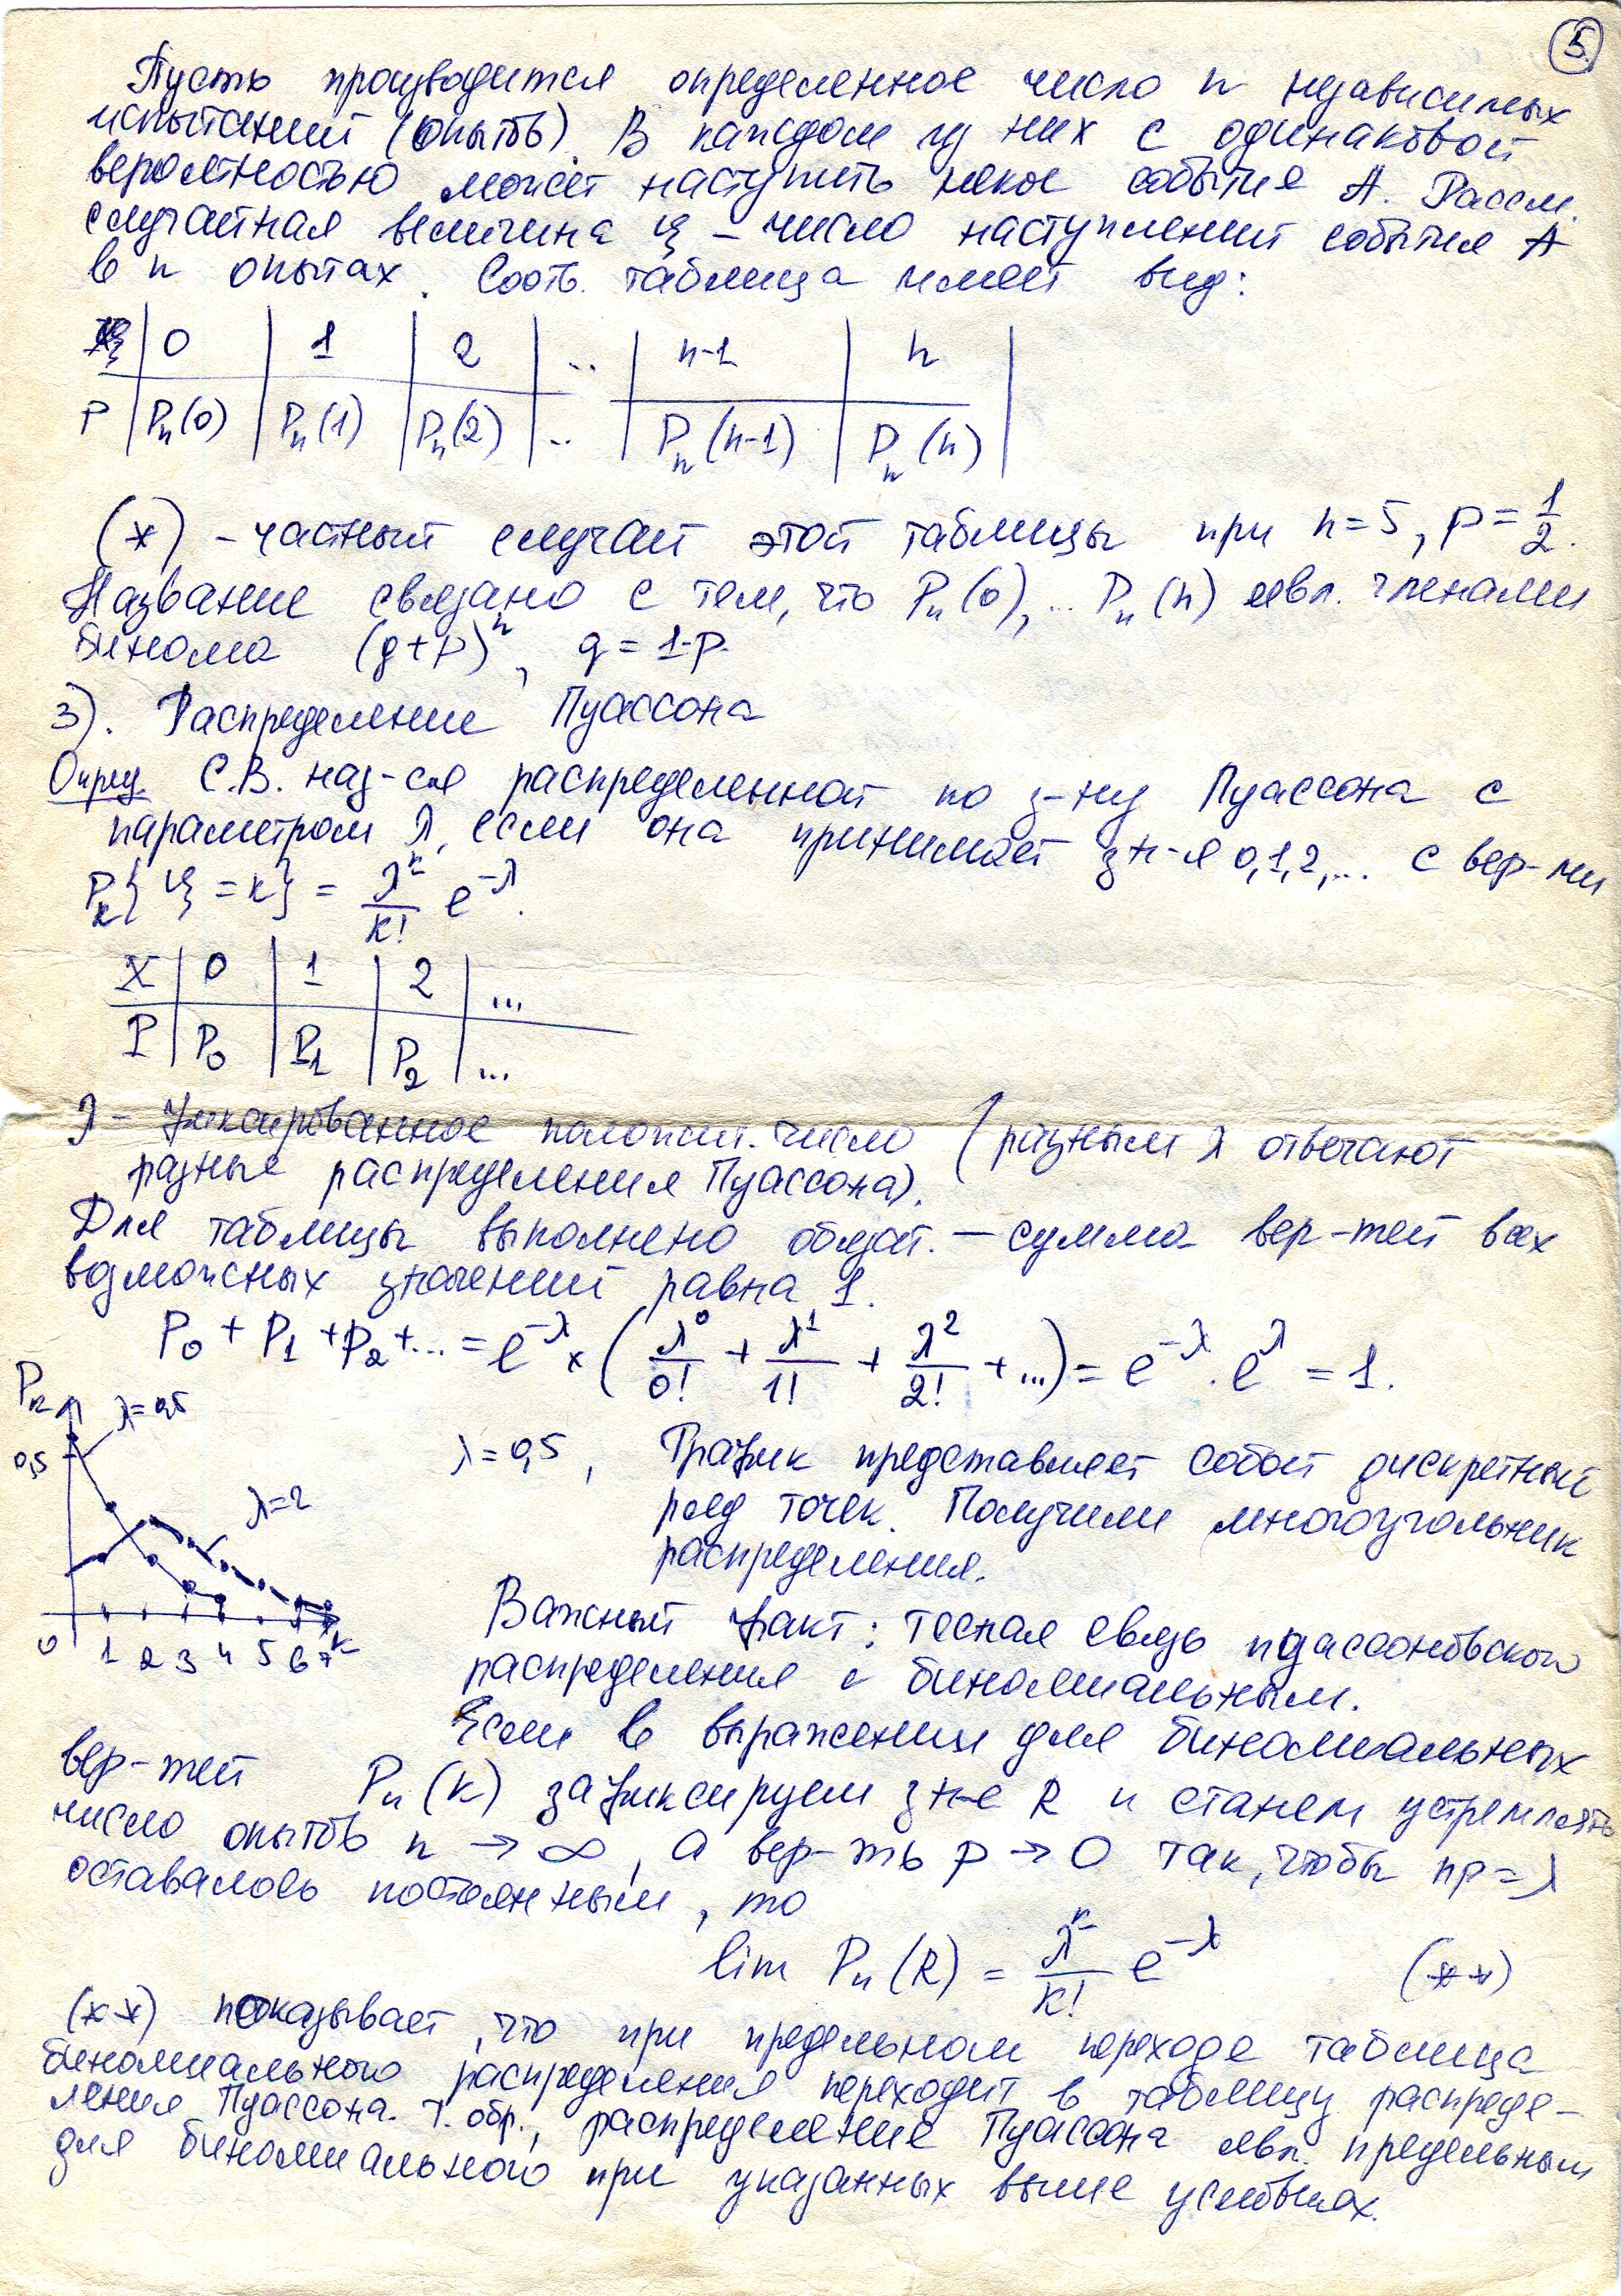 5
Пусть производится определенное число n независимых
испытаний (опытов). В каждом из них с одинаковой
вероятностью может наступить некое событие А. Рассм.
случайная величина ξ – число наступлений события А
в n опытах. Соотв. таблица имеет вид:
ξ | 0 | 1 | 2 | .. | n-1 | n |
P | Pn(0) | Pn(1) | Pn(2) | .. | Pn(n-1) | Pn(n) |
(*) – частный случай этой таблицы при n=5, p=1/2.
Название связано с тем, что Pn(0), ... Pn(n) явл. членами
бинома (q+p)^n, q = 1-p.
3). Распределение Пуассона
Опред. С.В. наз-ся распределенной по з-ну Пуассона с
параметром λ, если она принимает зн-я 0,1,2,... с вер-ми
Pk{ξ=k} = λ^k/k! e^-λ.
X | 0 | 1 | 2 | ...
P | P0 | P1 | P2 | ...
λ – фиксированное положит. число (разным λ отвечают
разные распределения Пуассона).
Для таблицы выполнено обязат. – сумма вер-тей всех
возможных значений равна 1.
P0 + P1 + P2 + ... = e^-λ × (λ^0/0! + λ^1/1! + λ^2/2! + ...) = e^-λ · e^λ = 1.
Pk
λ=0,5
0,5
λ=2
0 1 2 3 4 5 6 7 k
λ=0,5, График представляет собой дискретный
ряд точек. Получили многоугольник
распределения.
Важный факт: тесная связь пуассоновского
распределения с биномиальным.
Если в выражении для биномиальных
вер-тей Pn(k) зафиксируем зн-е k и станем устремлять
число опытов n → ∞, а вер-ть p → 0 так, чтобы np=λ
оставалось постоянным, то
lim Pn(k) = λ^k/k! e^-λ (**)
(**) показывает, что при предельном переходе таблица
биномиального распределения переходит в таблицу распреде-
ления Пуассона. Т. обр., распределение Пуассона явл. предельным
для биномиального при указанных выше условиях.